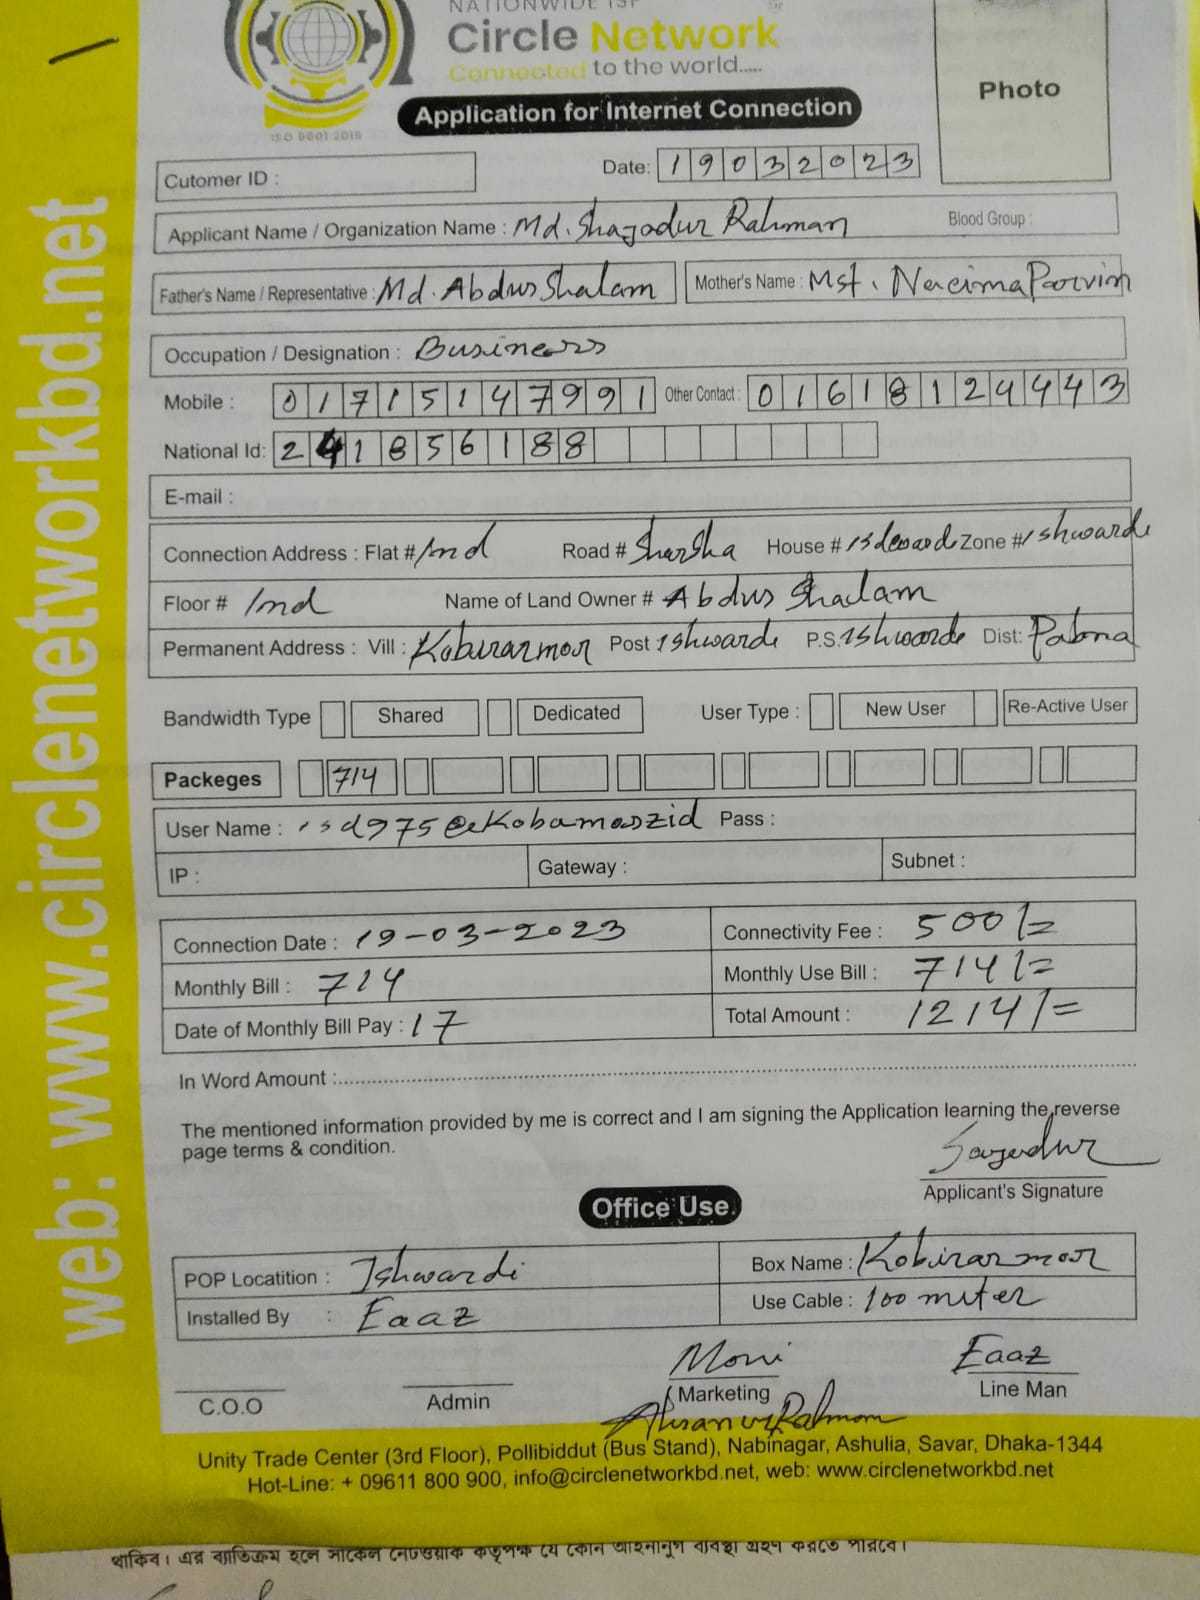 NATIONWIDE ISP
Circle Network
Connected to the world.....
ISO 9001:2015
Application for Internet Connection
Photo
Cutomer ID :
Date: 19032023
Applicant Name / Organization Name : Md. Shajadur Rahman Blood Group :
Father's Name / Representative : Md. Abdus Shalam Mother's Name : Mst. Nacima Parvin
Occupation / Designation : Business
Mobile : 01715147991 Other Contact : 01618124443
National Id: 241856188
E-mail :
Connection Address : Flat # Ind Road # Sharsha House # Zone # Ishwardi
Floor # Ind Name of Land Owner # Abdus Shalam
Permanent Address : Vill : Kobirarmor Post Ishwardi P.S. Ishwardi Dist: Pabna
Bandwidth Type Shared Dedicated User Type : New User Re-Active User
Packeges 714
User Name : isd975@ Pass :
IP : Gateway : Subnet :
Connection Date : 19-03-2023 Connectivity Fee : 500/=
Monthly Bill : 714 Monthly Use Bill : 714/=
Date of Monthly Bill Pay : 17 Total Amount : 1214/=
In Word Amount :
The mentioned information provided by me is correct and I am signing the Application learning the reverse
page terms & condition.
Sajadur
Applicant's Signature
Office Use
POP Locatition : Ishwardi Box Name : Kobirarmoor
Installed By : Eaaz Use Cable : 100 miter
Moni Eaaz
C.O.O Admin Marketing Line Man
Ahsanur Rahman
Unity Trade Center (3rd Floor), Pollibiddut (Bus Stand), Nabinagar, Ashulia, Savar, Dhaka-1344
Hot-Line: + 09611 800 900, info@circlenetworkbd.net, web: www.circlenetworkbd.net
থাকিব। এর ব্যাতিক্রম হলে সার্কেল নেটওয়ার্ক কতৃপক্ষ যে কোন আইনানুগ ব্যবস্থা গ্রহণ করতে পারবে।
web: www.circlenetworkbd.net